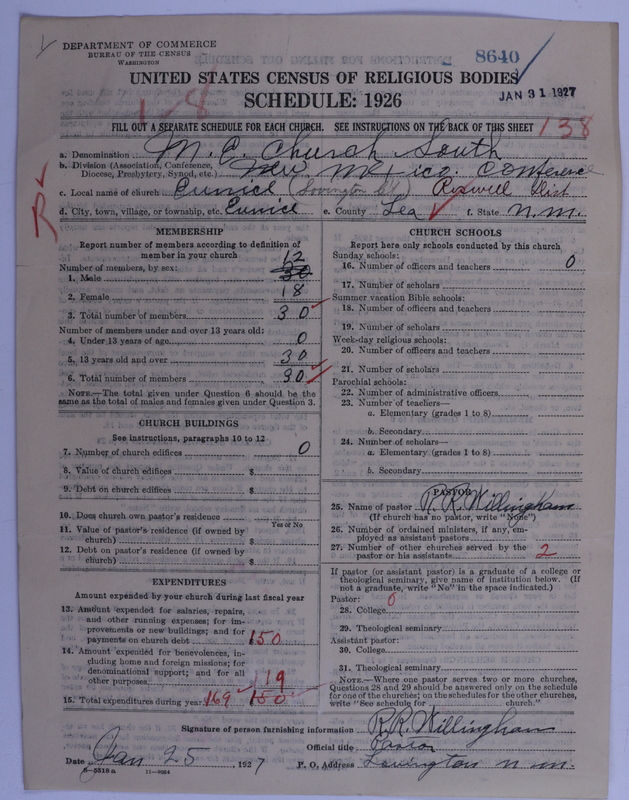 DEPARTMENT OF COMMERCE
BUREAU OF THE CENSUS
WASHINGTON
8640
UNITED STATES CENSUS OF RELIGIOUS BODIES
JAN 31 1927
SCHEDULE: 1926
1-8
FILL OUT A SEPARATE SCHEDULE FOR EACH CHURCH. SEE INSTRUCTIONS ON THE BACK OF THIS SHEET
138
a. Denomination M. E. Church South
b. Division (Association, Conference, Diocese, Presbytery, Synod, etc.) New Mexico Conference
c. Local name of church Eunice (Lovington Ct.) Roswell Dist
d. City, town, village, or township, etc. Eunice e. County Lea f. State N. M.
R
MEMBERSHIP
Report number of members according to definition of
member in your church
Number of members, by sex: 12
1. Male 30
2. Female 18
3. Total number of members 30
Number of members under and over 13 years old:
4. Under 13 years of age 0
5. 13 years old and over 30
6. Total number of members 30
NOTE.—The total given under Question 6 should be the
same as the total of males and females given under Question 3.
CHURCH BUILDINGS
See instructions, paragraphs 10 to 12
7. Number of church edifices 0
8. Value of church edifices $
9. Debt on church edifices $
10. Does church own pastor's residence
Yes or No
11. Value of pastor's residence (if owned by
church) $
12. Debt on pastor's residence (if owned by
church) $
EXPENDITURES
Amount expended by your church during last fiscal year
13. Amount expended for salaries, repairs,
and other running expenses; for im-
provements or new buildings; and for
payments on church debt 150
14. Amount expended for benevolences, in-
cluding home and foreign missions; for
denominational support; and for all
other purposes 19
15. Total expenditures during year 169 150
CHURCH SCHOOLS
Report here only schools conducted by this church
Sunday schools:
16. Number of officers and teachers 0
17. Number of scholars
Summer vacation Bible schools:
18. Number of officers and teachers
19. Number of scholars
Week-day religious schools:
20. Number of officers and teachers
21. Number of scholars
Parochial schools:
22. Number of administrative officers
23. Number of teachers—
a. Elementary (grades 1 to 8)
b. Secondary
24. Number of scholars—
a. Elementary (grades 1 to 8)
b. Secondary
PASTOR
25. Name of pastor R. R. Willingham
(If church has no pastor, write "None")
26. Number of ordained ministers, if any, em-
ployed as assistant pastors
27. Number of other churches served by the
pastor or his assistants 2
If pastor (or assistant pastor) is a graduate of a college or
theological seminary, give name of institution below. (If
not a graduate, write "No" in the space indicated.)
Pastor: 0
28. College
29. Theological seminary
Assistant pastor:
30. College
31. Theological seminary
NOTE.—Where one pastor serves two or more churches,
Questions 28 and 29 should be answered only on the schedule
for one of the churches; on the schedules for the other churches,
write "See schedule for church."
Signature of person furnishing information R. R. Willingham
Official title Pastor
Date Jan 25, 1927 P. O. Address Lovington N. M.
8-5518a 11-9264